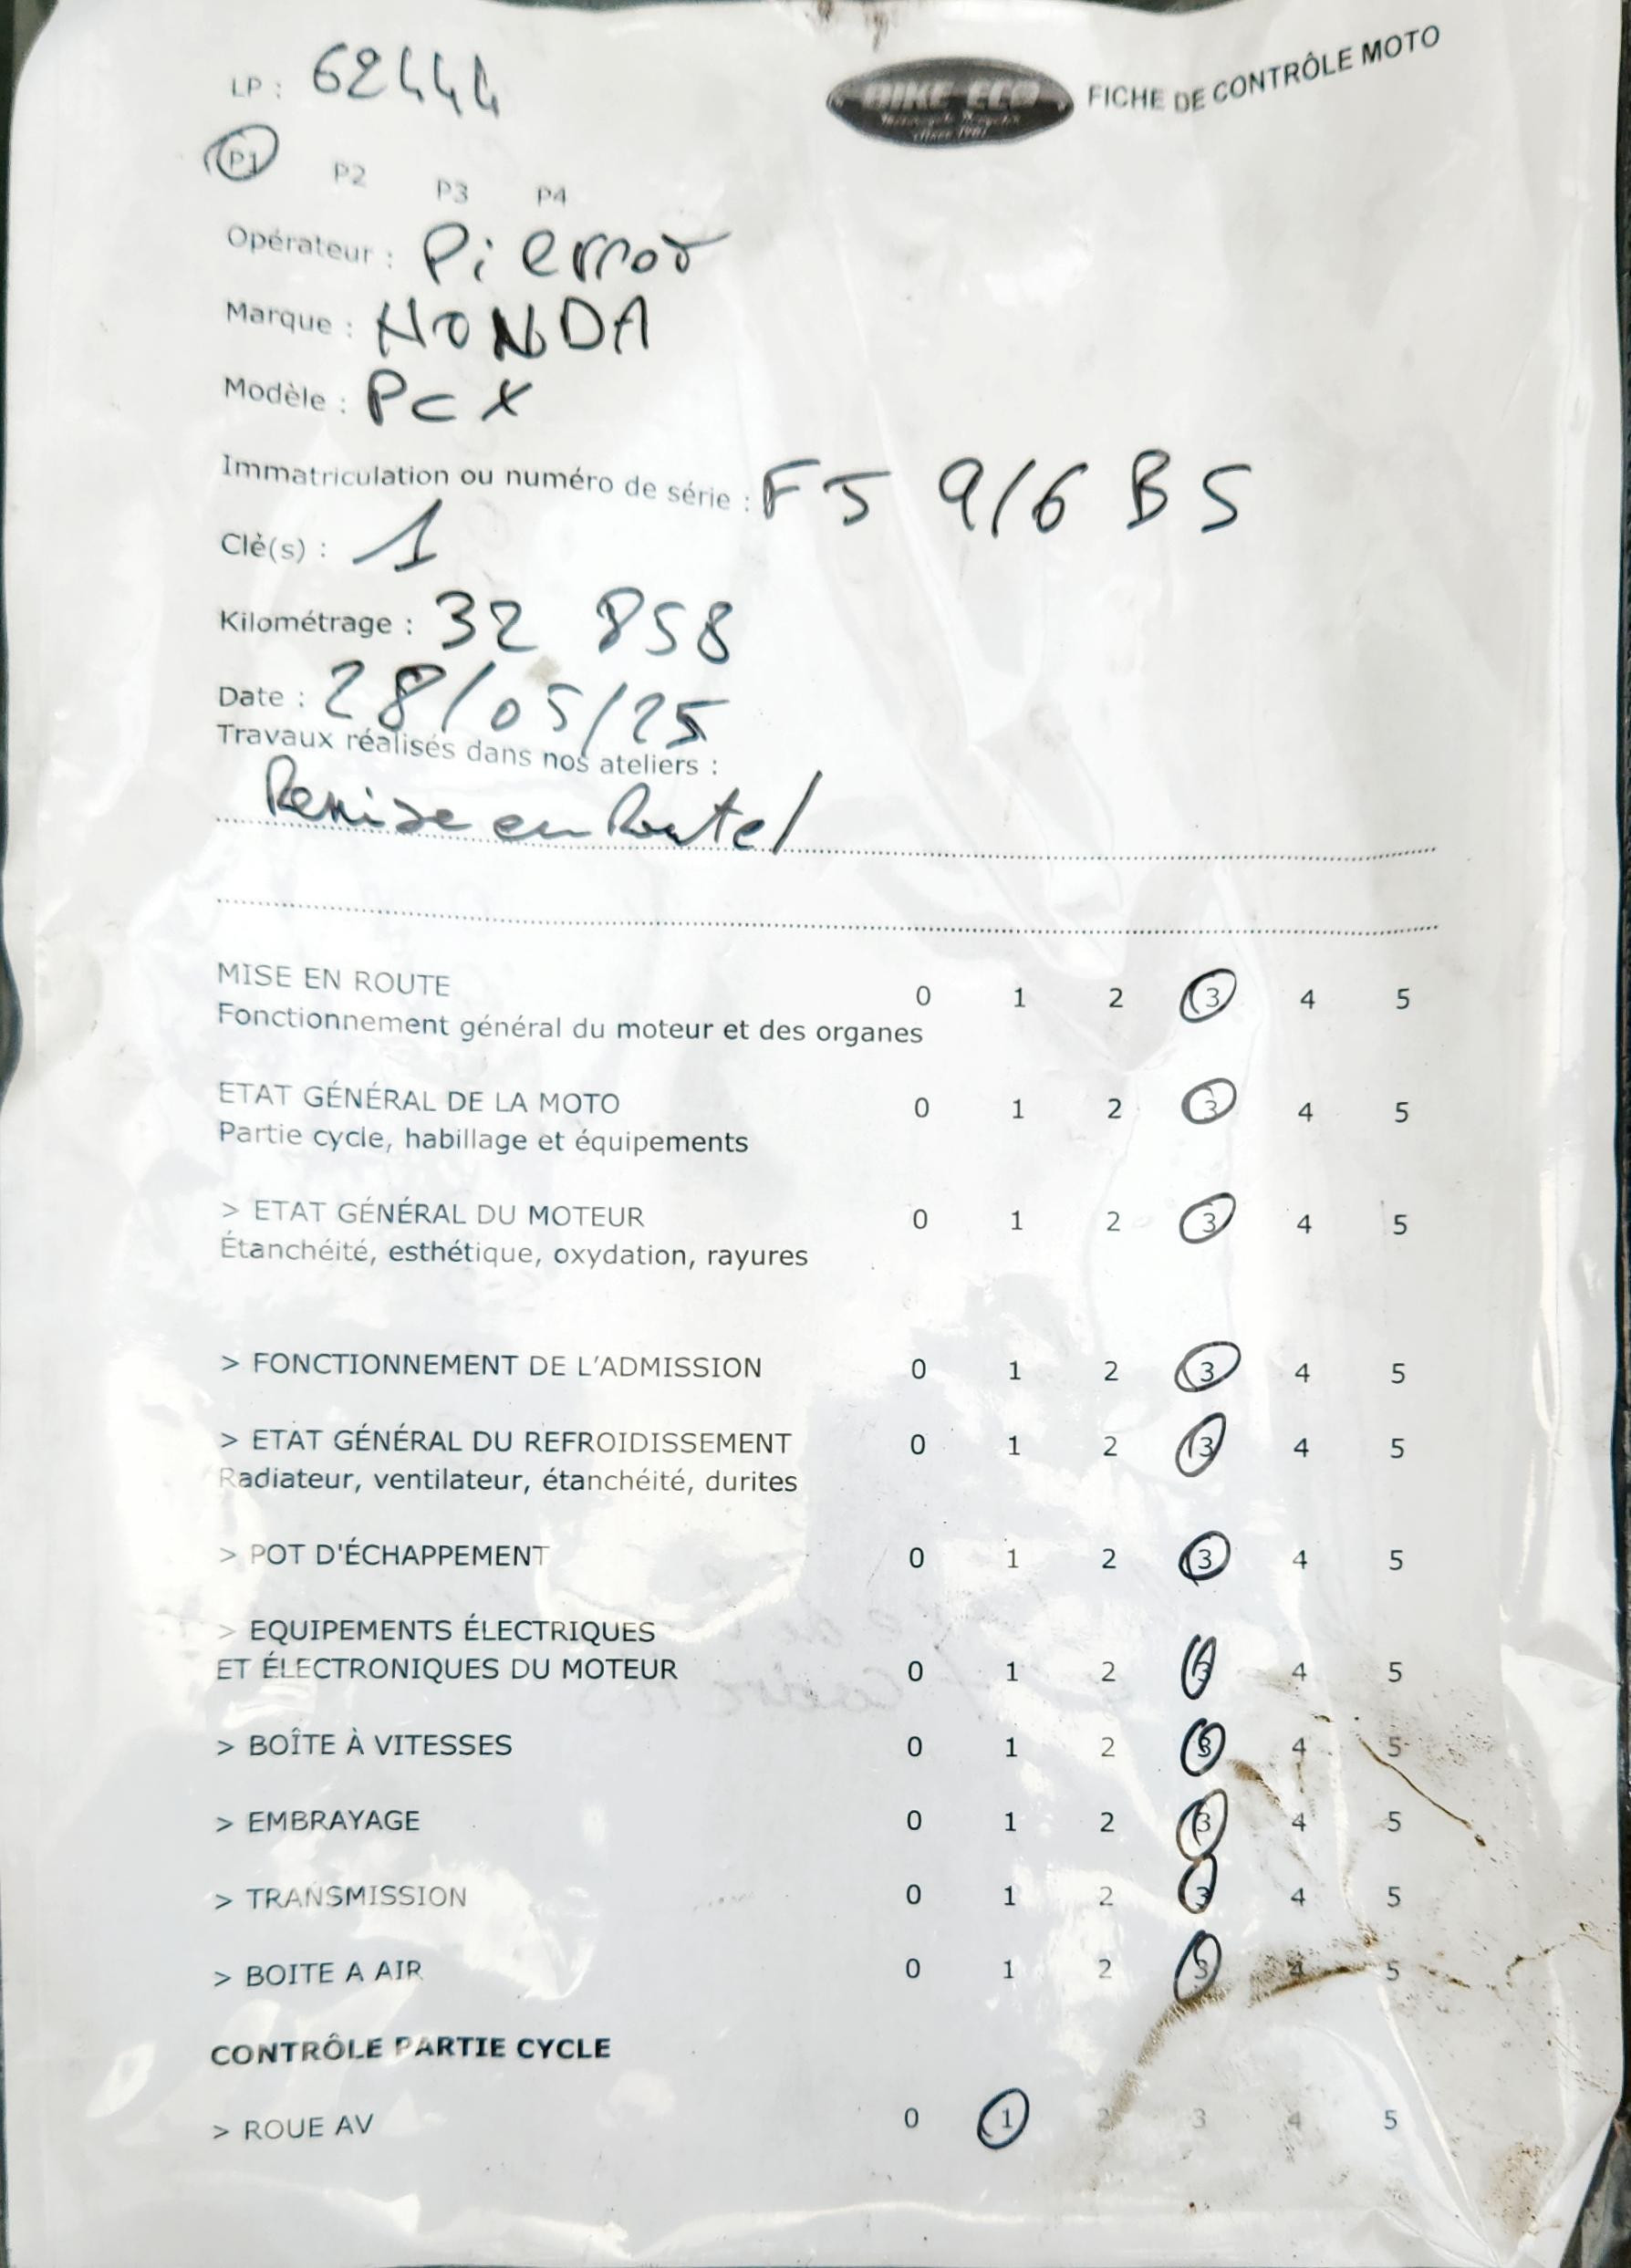 LP : 62444
BIKE ECO
FICHE DE CONTRÔLE MOTO
P1 P2 P3 P4
Opérateur : Pierrot
Marque : HONDA
Modèle : PCX
Immatriculation ou numéro de série : FJ 916 BS
Clé(s) : 1
Kilométrage : 32 858
Date : 28/05/25
Travaux réalisés dans nos ateliers :
Remise en Route/
MISE EN ROUTE 0 1 2 3 4 5
Fonctionnement général du moteur et des organes
ETAT GÉNÉRAL DE LA MOTO 0 1 2 3 4 5
Partie cycle, habillage et équipements
> ETAT GÉNÉRAL DU MOTEUR 0 1 2 3 4 5
Étanchéité, esthétique, oxydation, rayures
> FONCTIONNEMENT DE L'ADMISSION 0 1 2 3 4 5
> ETAT GÉNÉRAL DU REFROIDISSEMENT 0 1 2 3 4 5
Radiateur, ventilateur, étanchéité, durites
> POT D'ÉCHAPPEMENT 0 1 2 3 4 5
> EQUIPEMENTS ÉLECTRIQUES
ET ÉLECTRONIQUES DU MOTEUR 0 1 2 3 4 5
> BOÎTE À VITESSES 0 1 2 3 4 5
> EMBRAYAGE 0 1 2 3 4 5
> TRANSMISSION 0 1 2 3 4 5
> BOITE A AIR 0 1 2 3 4 5
CONTRÔLE PARTIE CYCLE
> ROUE AV 0 1 2 3 4 5